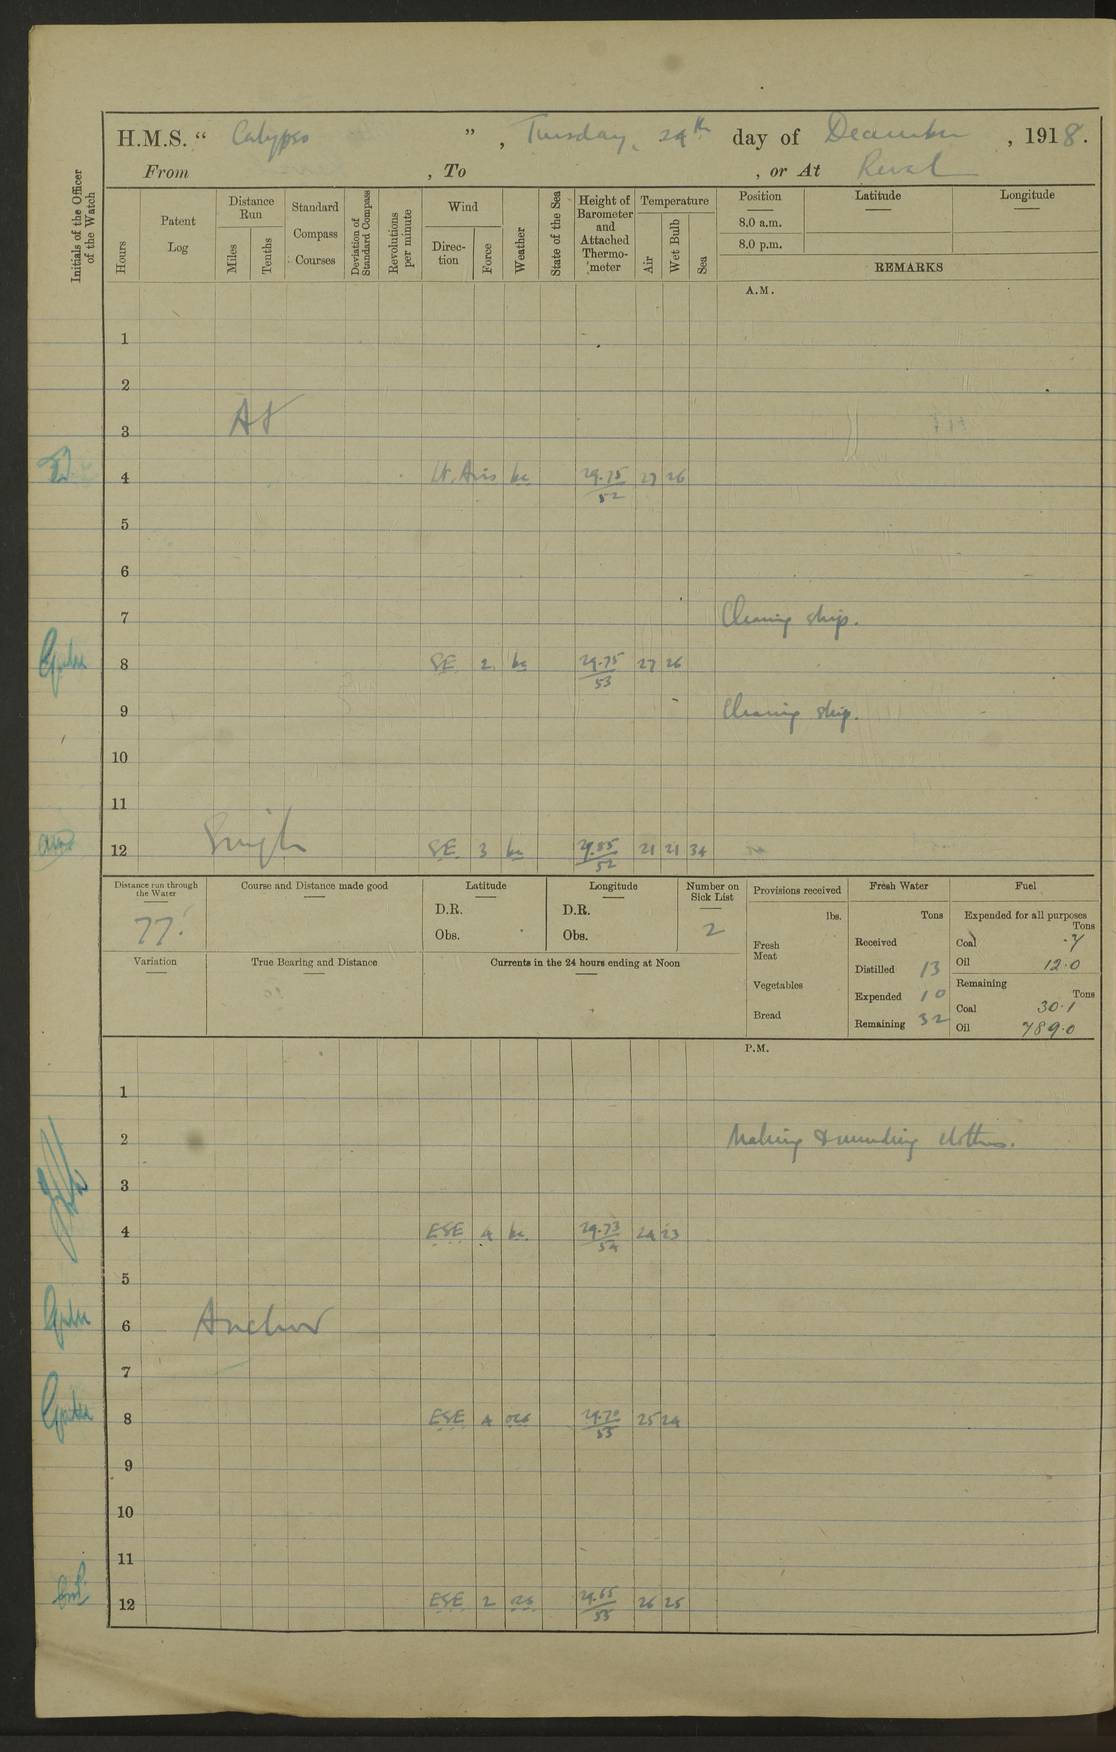 H.M.S. " Calypso ", Tuesday, 24th day of December, 1918.
From , To , or At Reval
Initials of the Officer of the Watch
Hours
Patent Log
Distance Run
Miles
Tenths
Standard Compass Courses
Deviation of Standard Compass
Revolutions per minute
Wind
Direction
Force
Weather
State of the Sea
Height of Barometer and Attached Thermometer
Temperature
Air
Wet Bulb
Sea
Position
Latitude
Longitude
8.0 a.m.
8.0 p.m.
REMARKS
A.M.
1
2
At
3
4 Lt. Airs bc 29.75/52 27 26
5
6
7 Cleaning ship.
8 SE 2 bc 29.75/53 27 26
9 Cleaning ship.
10
11
Single
12 SE 3 bc 29.85/52 21 21 34
Distance run through the Water
77.
Course and Distance made good
Latitude
D.R.
Obs.
Longitude
D.R.
Obs.
Number on Sick List
2
Provisions received
lbs.
Fresh Meat
Vegetables
Bread
Fresh Water
Tons
Received
Distilled 13
Expended 10
Remaining 32
Fuel
Expended for all purposes
Tons
Coal .7
Oil 12.0
Remaining
Tons
Coal 30.1
Oil 789.0
Variation
True Bearing and Distance
Currents in the 24 hours ending at Noon
P.M.
1
2 Making & mending clothes.
3
4 ESE 4 bc 29.73/54 24 23
5
6 Anchor
7
8 ESE 4 ocs 29.70/55 25 24
9
10
11
12 ESE 2 os 29.65/55 26 25